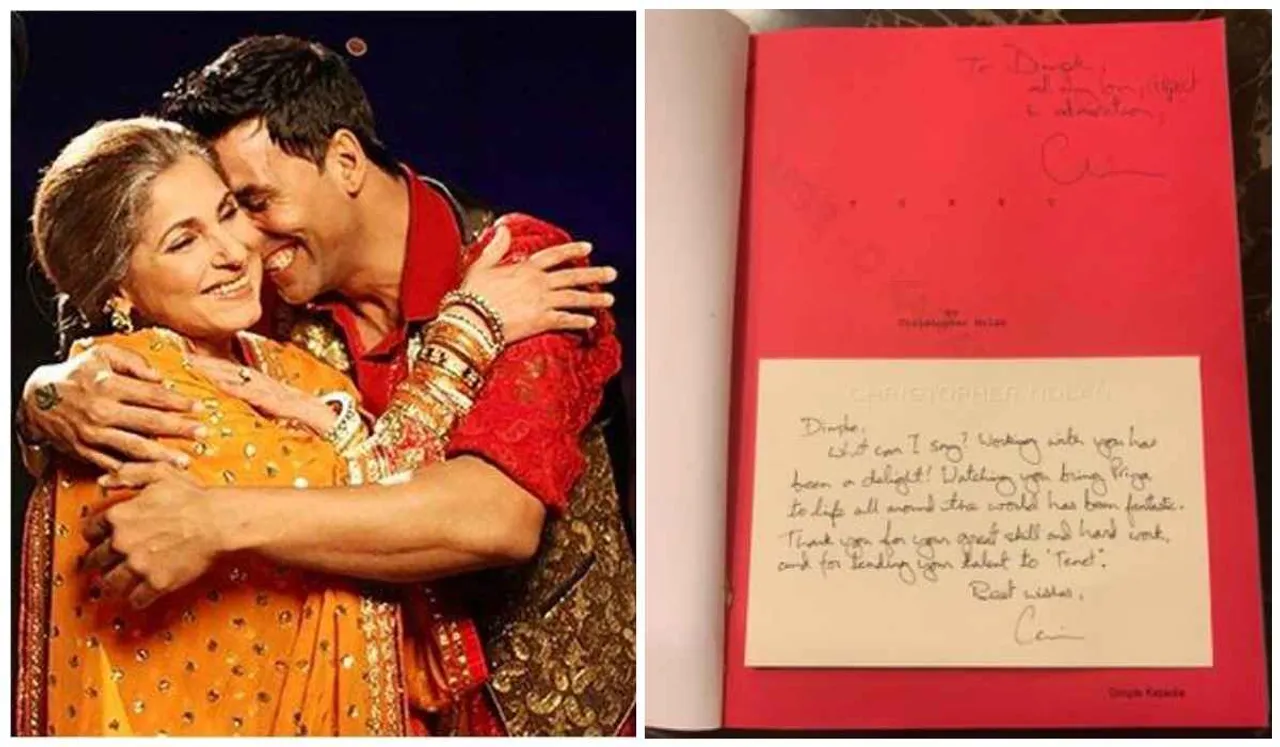 To Dimple,
all my love, respect
& admiration,
Chris
T E N E T
By
Christopher Nolan
CHRISTOPHER NOLAN
Dimple,
What can I say? Working with you has
been a delight! Watching you bring Priya
to life all around the world has been fantastic.
Thank you for your great skill and hard work,
and for lending your talent to 'Tenet'.
Best wishes,
Chris
Dimple Kapadia